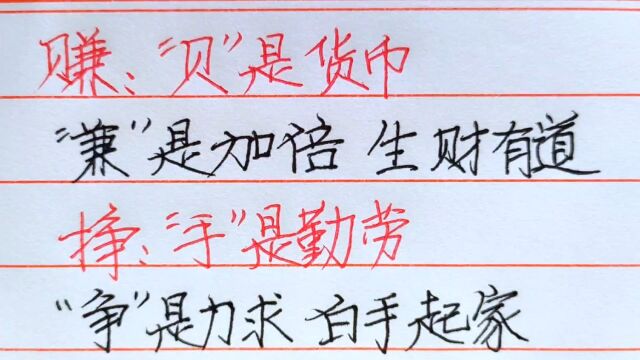 赚：“贝”是货币
“兼”是加倍 生财有道
挣：“手”是勤劳
“争”是力求 白手起家